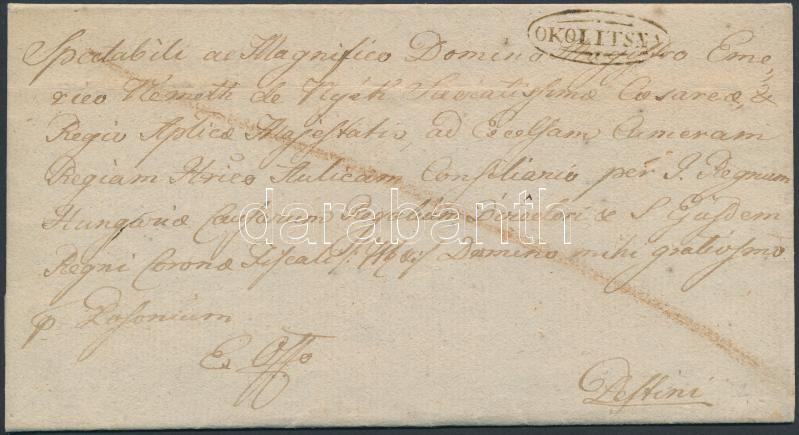 OKOLITSNA
Spectabili ac Magnifico Domino Eme,
rico Németh de Nyék Sacratissimæ Cæsareæ, &
Regiæ Aplicæ Majestatis, ad Excelsam Cameram
Regiam Hrico Aulicam Consiliario per I. Regnum
Hungariæ Causarum Regalium Directori & S. Ejusdem
Regni Coronæ Fiscali Domino mihi gratiosissmo
darabanth
p Posonium
Ex Offo
Pestini